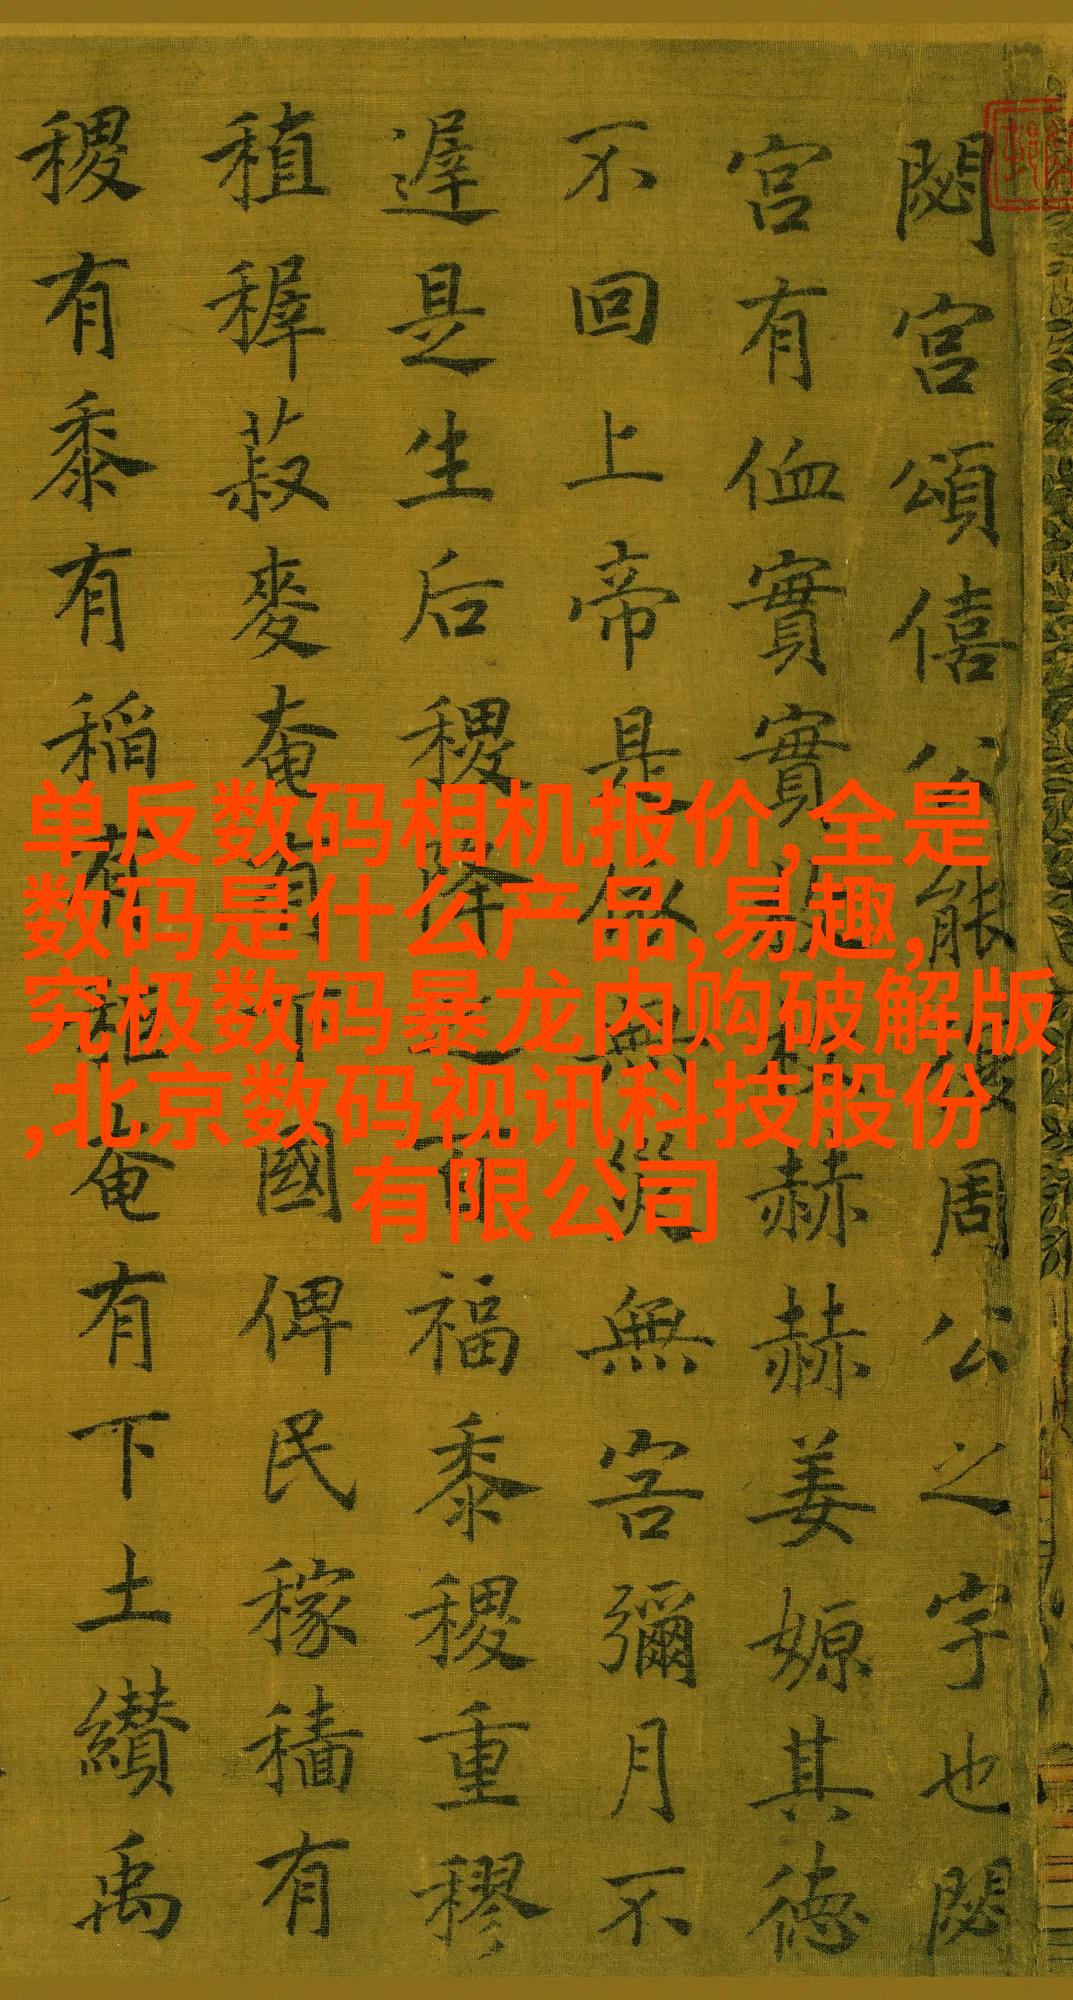 閟宮頌僖公能復周公之宇也閟
宮有侐實實枚枚赫赫姜嫄其德
不回上帝是依無災無害彌月不
遲是生后稷降之百福黍稷重穋
稙稺菽麥奄有下國俾民稼穡有
稷有黍有稻有秬奄有下土纘禹
单反数码相机报价,全是
数码是什么产品,易趣,
究极数码暴龙内购破解版
,北京数码视讯科技股份
有限公司